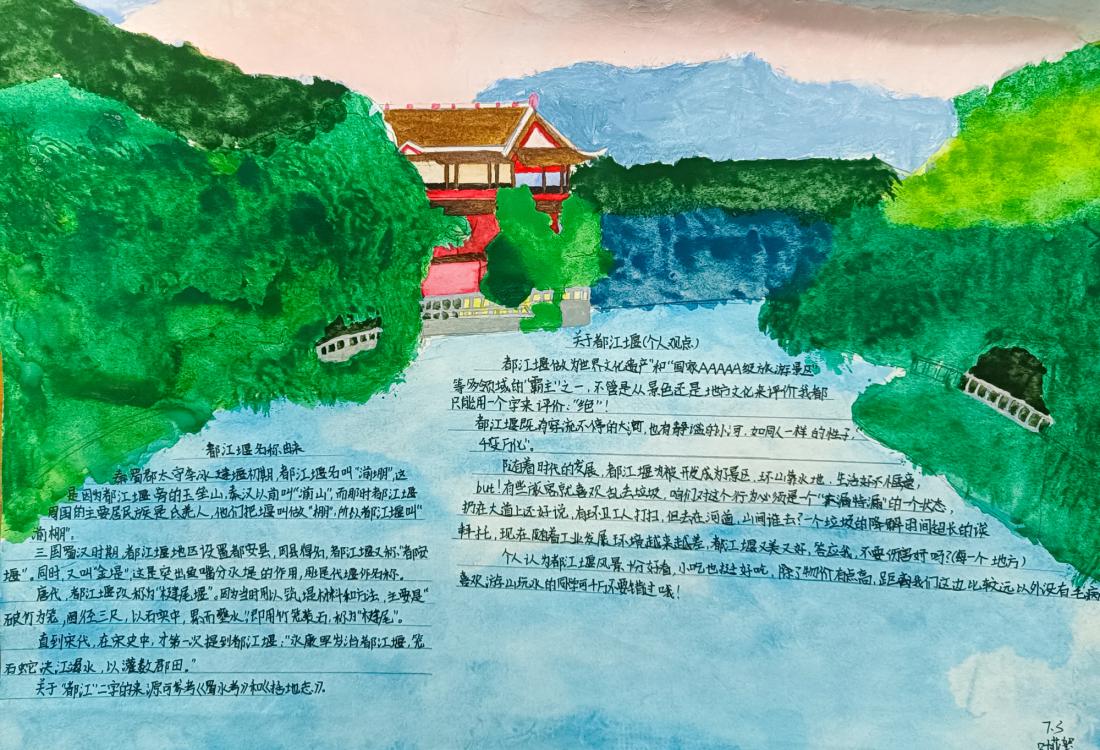 都江堰名称由来
秦蜀郡太守李冰建堰初期,都江堰名叫"湔堋",这
是因为都江堰旁的玉垒山,秦汉以前叫"湔山",而那时都江堰
周围的主要居民族是氐羌人,他们把堰叫做"堋",所以都江堰叫"
湔堋"。
三国蜀汉时期,都江堰地区设置都安县,因县得名,都江堰又称"都安
堰"。同时,又叫"金堤",这是突出鱼嘴分水堤的作用,用堤代堰作名称。
唐代,都江堰改称为"楗尾堰"。因为当时用以筑堤材料和方法,主要是"
破竹为笼,圆径三尺,以石实中,累而壅水",即用竹笼装石,称为"楗尾"。
直到宋代,在宋史中,才第一次提到都江堰:"永康军岁治都江堰,笼
石蛇决江遏水,以灌数郡田。"
关于"都江"二字的来源可参考《蜀水考》和《括地志》。
关于都江堰(个人观点)
都江堰做为世界文化遗产"和"国家AAAAA级旅游景区"
等多领域的"霸主"之一,不管是从景色还是地方文化来评价我都
只能用一个字来评价:"绝"!
都江堰既有奔流不停的大河,也有静谧的小河,如同人一样的性子,
千变万化"。
随着时代的发展,都江堰为被开发成为景区,环山靠水地,生活好不惬意,
but!有些游客就喜欢乱去垃圾,咱们对这个行为必须是一个"
的一个状态,
扔在大道上还好说,有环卫工人打扫,但去在河道,山间谁去?一个垃圾的降解时间超长的
料托,现在随着工业发展环境越来越差,都江堰又美又好,答应我,不要伤害好吗?(每一个地方)
个人认为都江堰风景十分好看,小吃也挺好吃,除了物价有点高,距离我们这边比较远以外没有毛病
喜欢游山玩水的同学可千万不要错过哦!
7.3